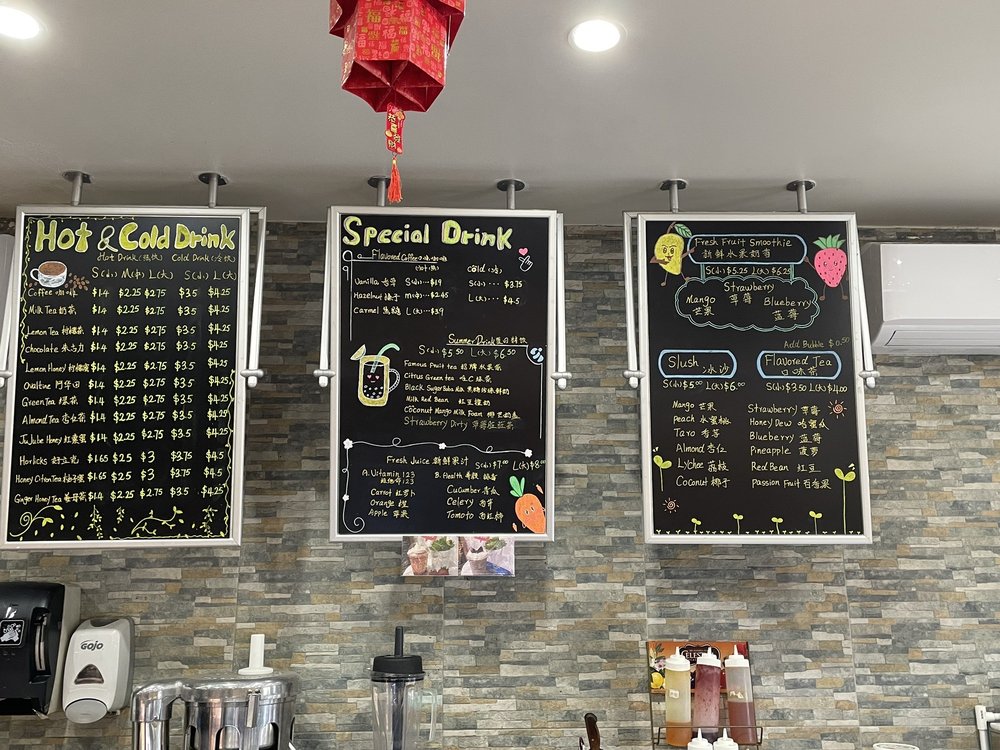 Hot & Cold Drink
Hot Drink(热饮) Cold Drink(冷饮)
S(小) M(中) L(大) S(小) L(大)
Coffee 咖啡 $1.4 $2.25 $2.75 $3.5 $4.25
Milk Tea 奶茶 $1.4 $2.25 $2.75 $3.5 $4.25
Lemon Tea 柠檬茶 $1.4 $2.25 $2.75 $3.5 $4.25
Chocolate 朱古力 $1.4 $2.25 $2.75 $3.5 $4.25
Lemon Honey 柠檬蜜 $1.4 $2.25 $2.75 $3.5 $4.25
Ovaltine 阿华田 $1.4 $2.25 $2.75 $3.5 $4.25
Green Tea 绿茶 $1.4 $2.25 $2.75 $3.5 $4.25
Almond Tea 杏仁茶 $1.4 $2.25 $2.75 $3.5 $4.25
JuJube Honey 红枣蜜 $1.4 $2.25 $2.75 $3.5 $4.25
Horlicks 好立克 $1.65 $2.5 $3 $3.75 $4.5
Honey Citron Tea 柚子蜜 $1.65 $2.5 $3 $3.75 $4.5
Ginger Honey Tea $1.4 $2.25 $2.75 $3.5 $4.25
Special Drink
Flavored Coffee 口味咖啡
cold
Vanilla 香草 S(小)...$1.9 S(小)... $3.75
Hazelnut 榛子 m(中)...$2.45 L(大)... $4.5
Carmel 焦糖 L(大)...$3.9
Summer Drink 夏日特饮
S(小)$5.50 L(大)$6.50
Famous Fruit tea 招牌水果茶
Citrus Green tea
Black Sugar Boba Milk 黑糖珍珠鲜奶
Milk Red Bean 红豆牛奶
Coconut Mango Milk Foam
Strawberry Dirty
Fresh Juice 新鲜果汁 S(小)$7.00 L(大)$8.00
A. Vitamin 123 B. Health
维他命123
Carrot 红萝卜 Cucumber 青瓜
Orange 橙 Celery 西芹
Apple 苹果 Tomato 西红柿
Fresh Fruit Smoothie
新鲜水果奶昔
S(小)$5.25 L(大)$6.25
Strawberry
Mango 草莓 Blueberry
芒果 蓝莓
Add Bubble $0.50
Slush 冰沙 Flavored Tea
口味茶
S(小)$5.00 L(大)$6.00 S(小)$3.50 L(大)$4.00
Mango 芒果 Strawberry 草莓
Peach 水蜜桃 Honey Dew 哈蜜瓜
Taro 香芋 Blueberry 蓝莓
Almond 杏仁 Pineapple 菠萝
Lychee 荔枝 Red Bean 红豆
Coconut 椰子 Passion Fruit 百香果
GOJO